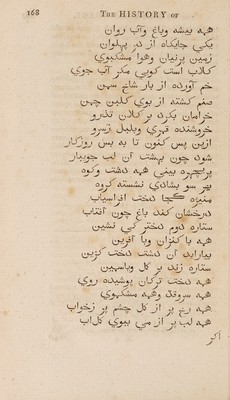 168 The HISTORY of
همه بیشه وباغ وآب روان
یکی جایگاه از در پهلوان
زمین پرنیان وهوا مشکبوی
کلابست کویی مکر آب جوی
خم آورده از بار شاخ سمن
صنم کشته از بوی کلبن چمن
خرامان بکرد بر کلان تذرو
خروشنده قمری وبلبل زسرو
ازین پس کنون تا به بس روزکار
شود چون بهشت آن لب جویبار
پریچهره بینی همه دشت وکوه
بهر سو بشادی نشسته کروه
منیژه کجا دخت افراسیاب
درخشان کند باغ چون آفتاب
ستاره دوم دختر کی نشین
همه با کنیزان وبا آفرین
بیاراید آن دشت دخت کزین
ستاره زند بر کل ویاسمین
همه دخت ترکان پوشیده روی
همه سروقد وهمه مشکموی
همه رخ پر از کل چشم پر زخواب
همه لب پر از می ببوی کلاب
اکر